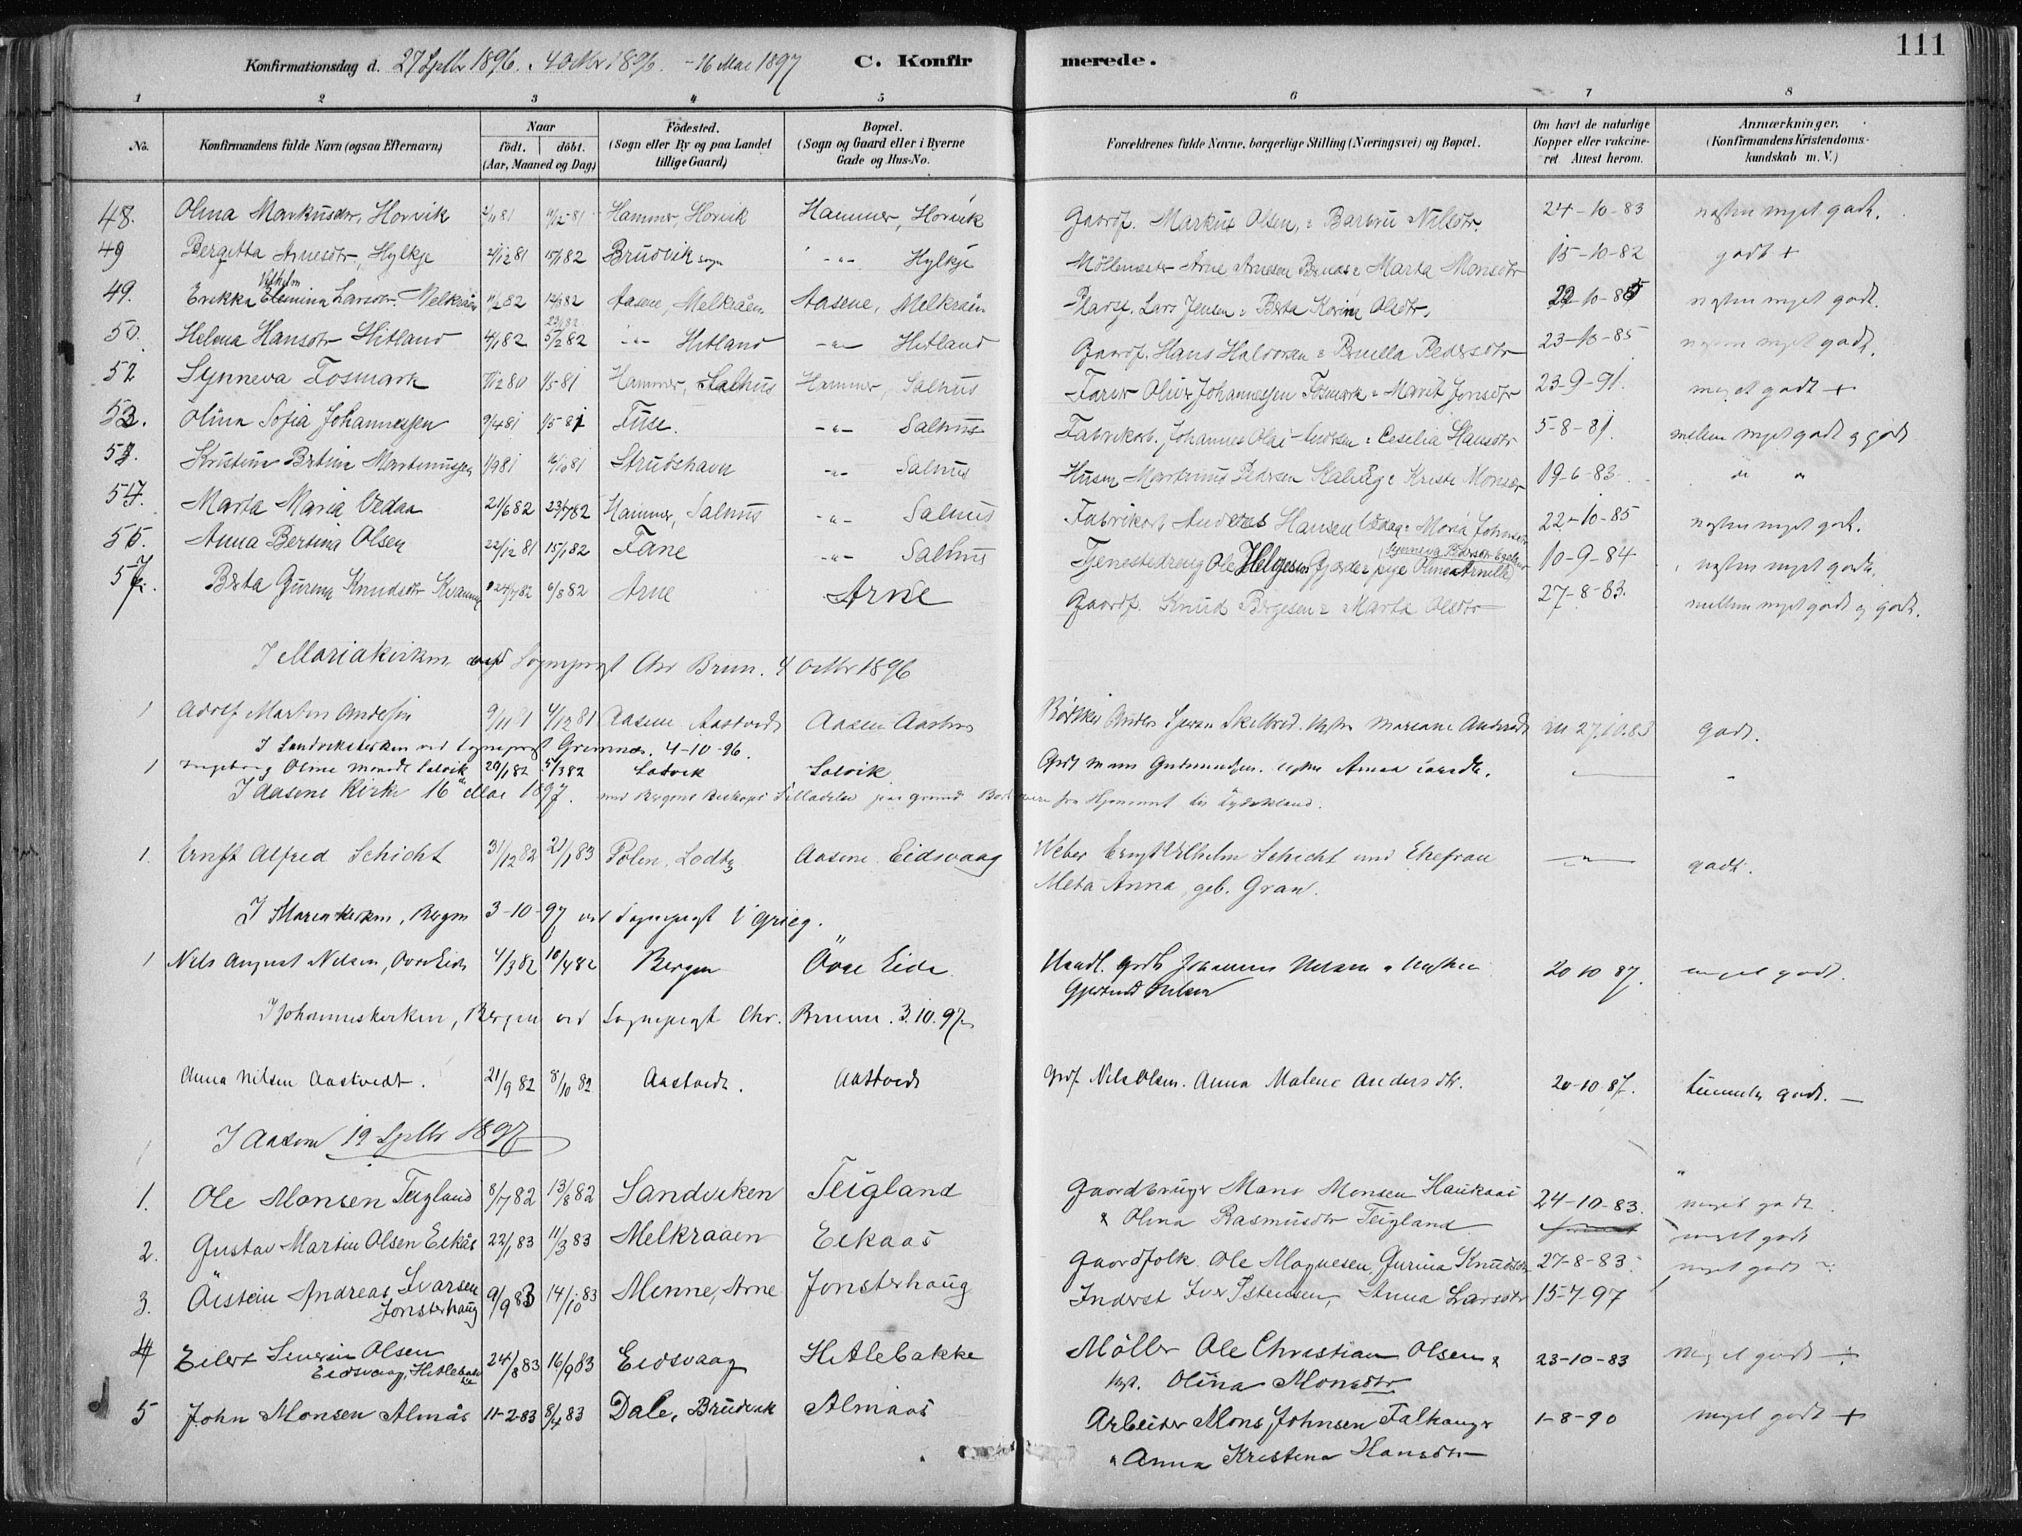 111
Konfirmationsdag d. 27 Septbr 1896. 4 Oktbr 1896. - 16 Mai 1897 C. Konfirmerede.
1 2 3 4 5 6 7 8
No. Konfirmandens fulde Navn (ogsaa Efternavn) Naar födt. döbt. (Aar, Maaned og Dag) Födested. (Sogn eller By og paa Landet tillige Gaard) Bopæl. (Sogn og Gaard eller i Byerne Gade og Hus-No.) Forældrenes fulde Navne, borgerlige Stilling (Næringsvei) og Bopæl. Om havt de naturlige Kopper eller vakcineret Attest herom. Anmærkninger. (Konfirmandens Kristendomskundskab m. V.)
48. Olina Markusdtr, Horvik 81 81 Hammer, Horvik Hammer, Horvik Gaardf. Markus Olsen, Barbru Nilsdtr. 24-10-83 næsten meget godt.
49 Bergitta Arnesdtr, Hylkje 2/12 81 15/1 82 Brudvik sogn -"- Hylkje Arne Arnesen Marta Monsdtr 15-10-82 godt +
49. Erikka Vilhelmina Larsdtr Melkråen 82 82 Aasene, Melkråen Aasene, Melkråen Lars Jensen Berta Korine Olsdtr. 22-10-85 næsten meget godt.
50. Helena Hansdtr Hitland 4/1 82 5/2 82 -"- Hitland -"- Hitland Gaardf. Hans Halvorsen Pedersdtr 23-10-85 næsten meget godt.
52 Synneva Fosmark 12 80 1/5 81 Hammer, Salhus Hammer, Salhus Oliver Johannessen Fosmark Marit Jonsdtr 23-9-91. meget godt +
53. Olina Sofia Johannessen 9/4 81 1/5 81 Fuse. -"- Salhus Fabrikarb. Johannes Olai Cecelia Hansdtr 5-8-81 mellem meget godt og godt
Kristine Bertine Martinussen 81 81 Strudshavn -"- Salhus Husm Martinus Pedersen Kriste Monsdtr 19-6-83 " "
Marta Maria Urdaa 21/6 82 23/7 82 Hammer, Salhus -"- Salhus Fabrikarb Andreas Hansen Urdaa Maria 22-10-85 næsten meget godt.
55. Anna Bertina Olsen 22/12 81 15/1 82 Fane -"- Salhus Tjenestedreng Ole Helgesen 10-9-84 næsten meget godt.
Berta Gurina Knudsdtr Kvamme 24/7 82 6/8 82 Arne Arne Gaardf. Knud Børgesen Marta Olsdtr 27-8-83. mellem meget godt og godt.
I Mariakirken ved Sogneprest Chr Brun. 4 Octbr 1896
1 Adolf Martin Andersen 9/11 81 4/12 81 Aasene Aastvedt Aasene Aastve Bødker Anders Iversen Marianne Andersdt 27.10.83 godt.
I Sandvikskirken ved Sogneprest Grimnæs. 4-10-96.
1 Ingeborg Oline Monsdt Salvik 29/1 82 5/3 82 Salvik Salvik. Mons Gudmundsen Anna
I Aasene Kirke 16 Mai 1897. med Bergens Biskops Tilladelse paa Grund fra Hjemmet til Tydskland.
1. Ernst Alfred Schicht 31/12 82 21/1 83 Polen, Lodtz Aasene Eidsvaag Weber Ernst Vilhelm Schicht und Ehefrau -"- godt.
Meta Anna, geb. Gran.
I Mariakirken, Bergen 3-10-97 ved Sogneprest J Grieg.
1 Nils August Nilsen, Øvre Eide 4/3 82 10/4 82 Bergen Övre Eide Johannes Nilsen 20 10 87. meget godt.
Gjertrud Nilsen
I Johanneskirken, Bergen ved Sogneprest Chr. Bruun. 3.10.97
Anna Nilsen Aastvedt. 21/9 82 8/10 82 Aastvedt. Aastvedt Grdf. Nils Olsen. Anna Malene Andersdtr. 20-10-87. temmelig godt. —
I Aasene 19 Septbr 1897
1. Ole Monsen Teigland 8/7 82 13/8 82 Sandviken Teigland Gaardbruger Mans Monsen Haukaas 24-10-83. meget godt.
& Olina Rasmusdtr Teigland
2. Gustav Martin Olsen Eikås 22/1 83 11/3 83 Melkraaen Eikaas Gaardfolk. Ole Magnesen, Gurina Knudsdtr 27-8-83. meget godt
3. Öistein Andreas Ivarsen Jonsterhaug 9/9 83 14/10 83 Menne, Arne Jonsterhaug Inderst Iver Istensen, Anna Larsdtr 15-7-97 meget godt
4 Eilert Severin Olsen Eidsvaag, Hitlebakke 24/8 83 16/9 83 Eidsvaag Hitlebakke Möller Ole Christian Olsen & 23-10-83 meget godt
Olina Monsdtr
5 John Monsen Almås 11-2-83 8/4 83 Dale, Brudvik Almaas Arbeider Mons Johnsen Falkanger 1-8-90 meget godt +
& Anna Kristena Hansdtr